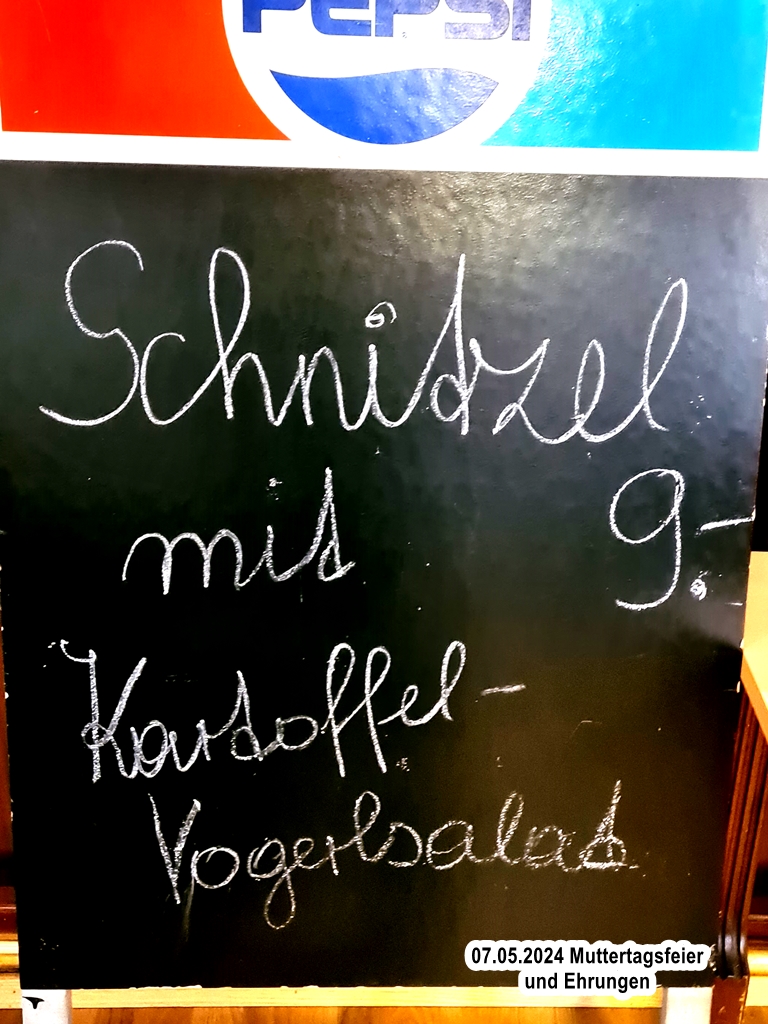 PEPSI
Schnitzel
mit 9.-
Kartoffel-
Vogerlsalat
07.05.2024 Muttertagsfeier
und Ehrungen